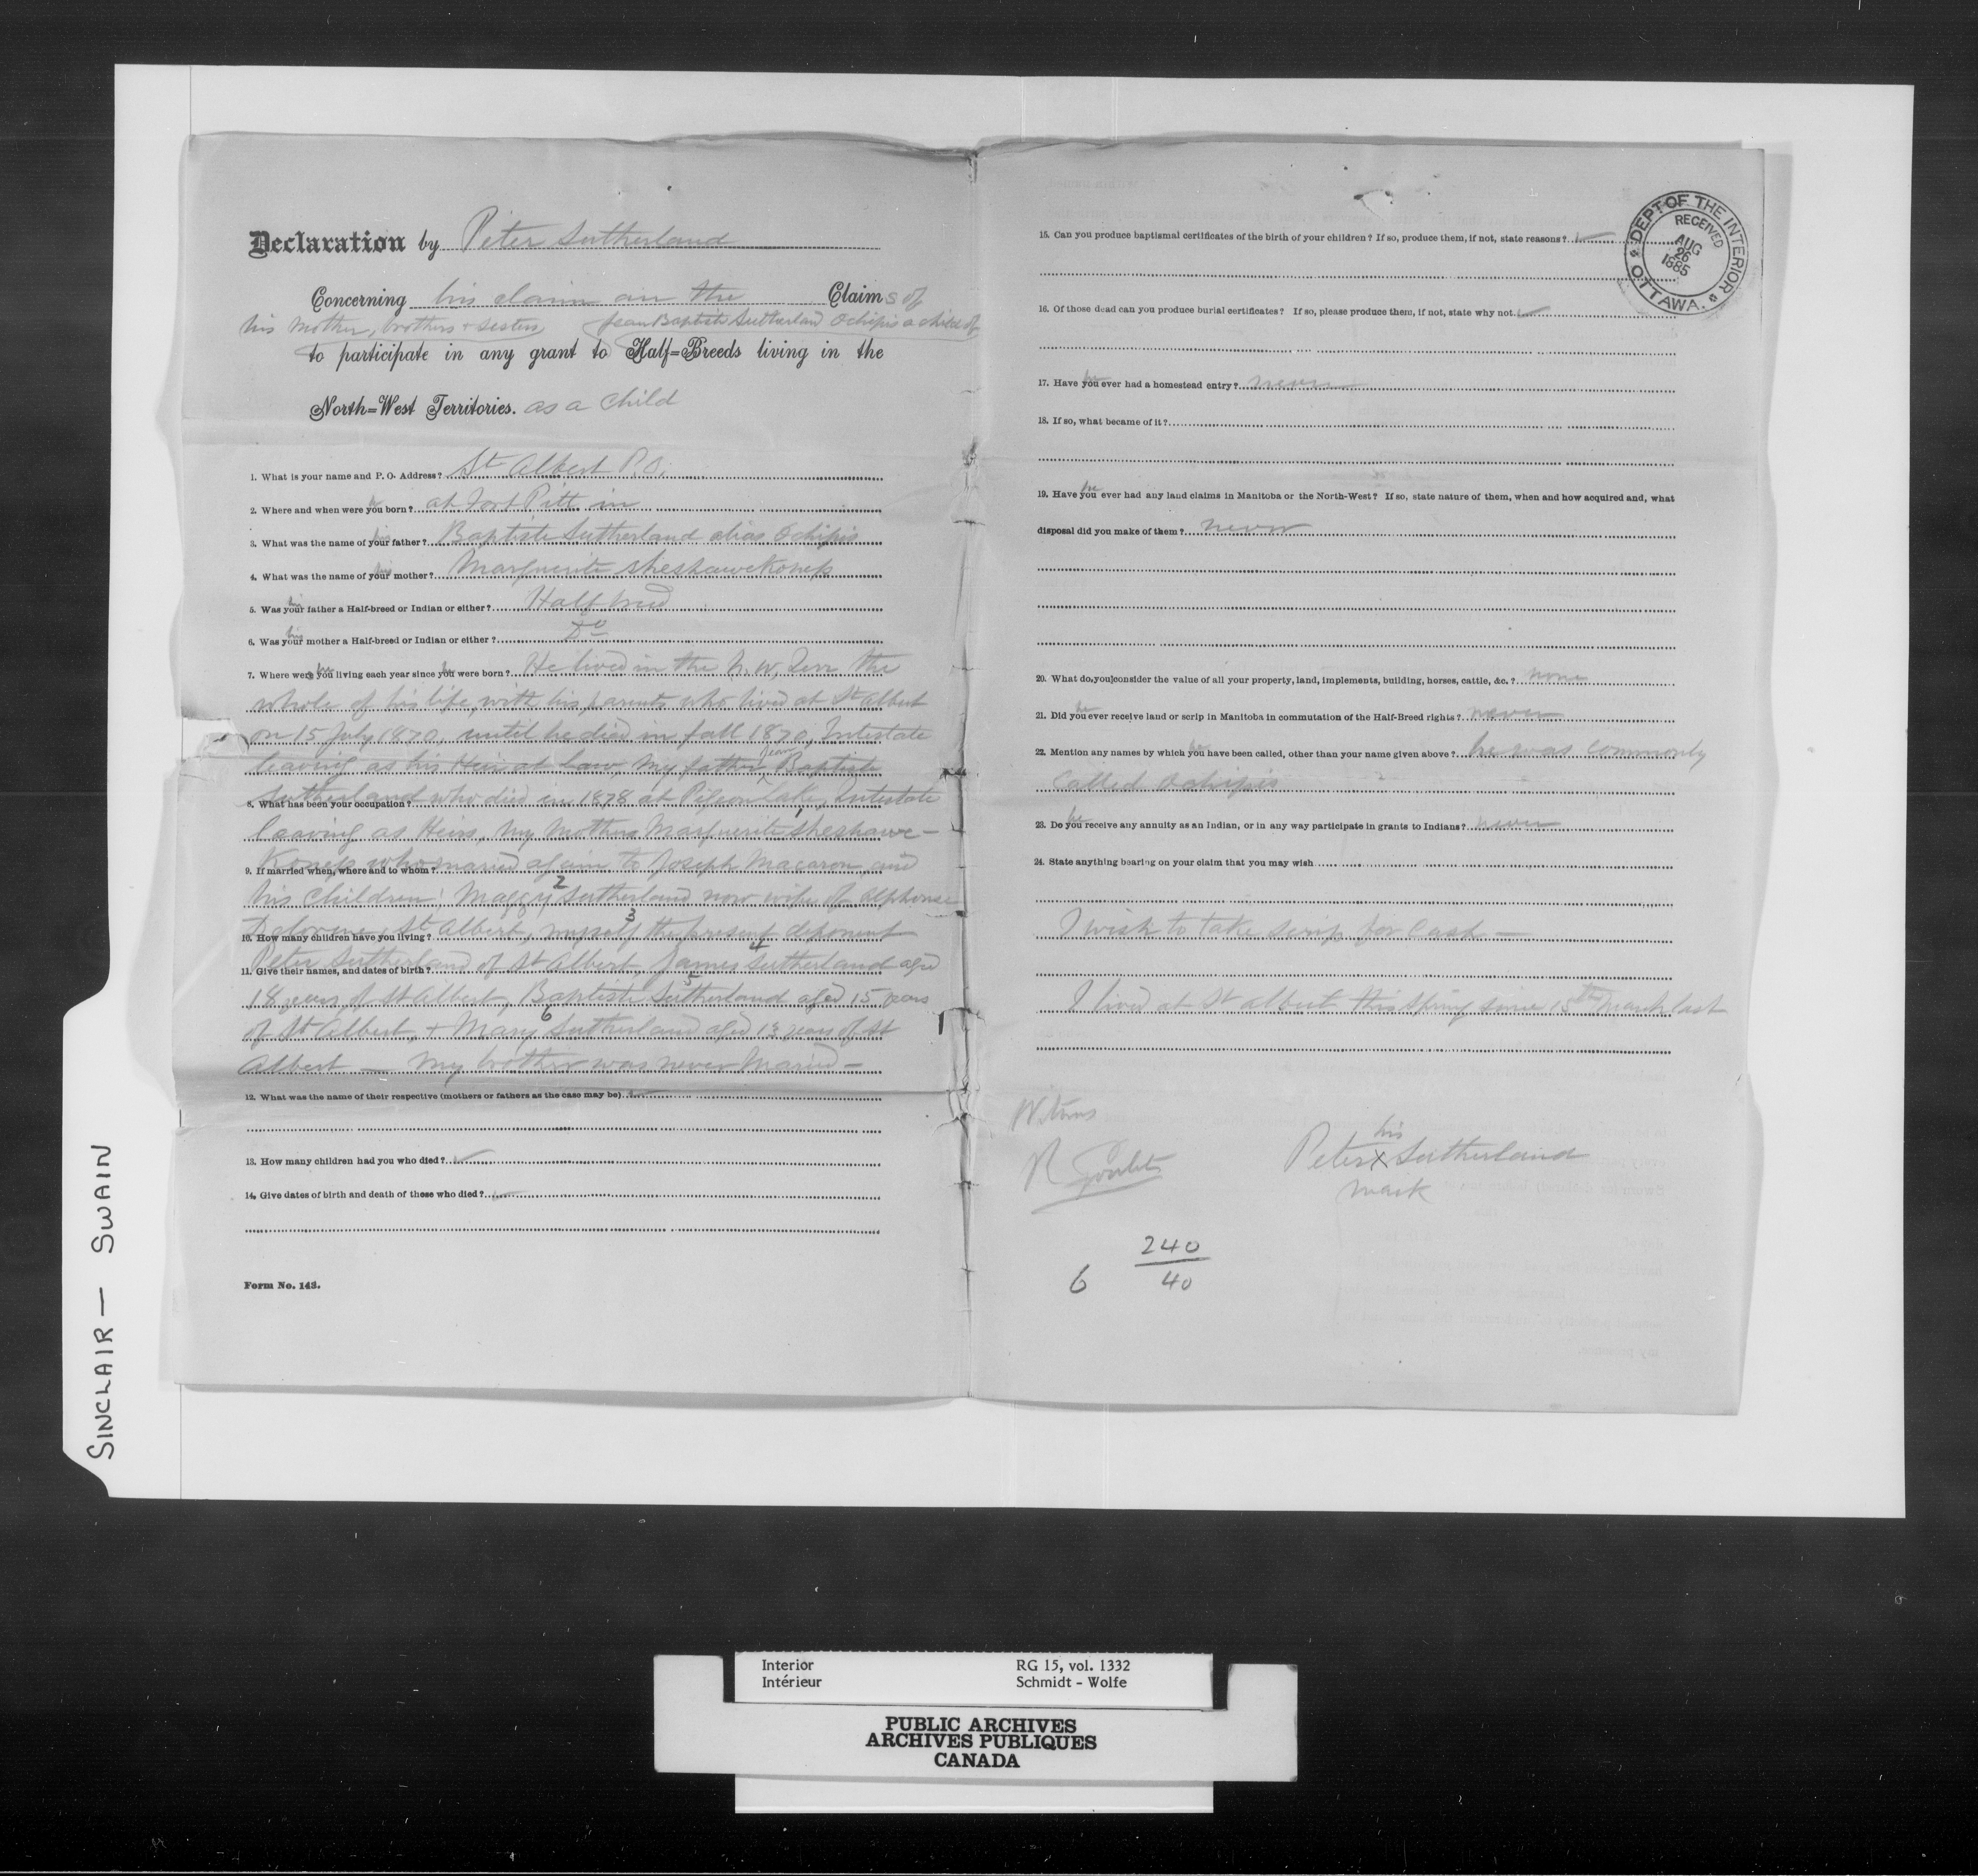 Declaration by Peter Sutherland
Concerning his claim an the Claims of
his Mother, brothers + sisters, Jean Baptiste Sutherland Ochipis a child of
to participate in any grant to Half=Breeds living in the
North=West Territories. as a child
1. What is your name and P. O. Address? St Albert P.O.
2. Where and when were you he born? at Fort Pitt in
3. What was the name of your his father? Baptiste Sutherland alias Ochipis
4. What was the name of your his mother? Marguerite
5. Was your his father a Half-breed or Indian or either? Half breed
6. Was your his mother a Half-breed or Indian or either? Do
7. Where were you he living each year since you he were born? He lived in the N. W. Terr the
whole of his life, with his parents who lived at St Albert
on 15 July 1870, until he died in fall 1870, Intestate
leaving as his Heir at law, My father Jean Baptiste
Sutherland who died in 1878 at Pigeon Lake, Intestate
8. What has been your occupation?
leaving as Heirs, My Mother 1 Marguerite
who married again to Joseph Macaron, and
9. If married when, where and to whom?
his Children: Maggy 2 Sutherland now wife of Alphonse
St Albert, myself 3 the present deponent
10. How many children have you living?
Peter Sutherland of St Albert, James 4 Sutherland aged
11. Give their names, and dates of birth?
18 years of St Albert, Baptiste 5 Sutherland aged 15 years
of St Albert, + Mary 6 Sutherland aged 13 years of St
Albert — My brother was never Married —
12. What was the name of their respective (mothers or fathers as the case may be)
13. How many children had you who died?
14. Give dates of birth and death of these who died?
Form No. 143.
15. Can you produce baptismal certificates of the birth of your children? If so, produce them, if not, state reasons?
16. Of those dead can you produce burial certificates? If so, please produce them, if not, state why not.
17. Have you he ever had a homestead entry? never
18. If so, what became of it?
19. Have you he ever had any land claims in Manitoba or the North-West? If so, state nature of them, when and how acquired and, what
disposal did you make of them? never
20. What do you consider the value of all your property, land, implements, building, horses, cattle, &c.? none
21. Did you he ever receive land or scrip in Manitoba in commutation of the Half-Breed rights? never
22. Mention any names by which you he have been called, other than your name given above? he was commonly
called Ochipis
23. Do you he receive any annuity as an Indian, or in any way participate in grants to Indians? never
24. State anything bearing on your claim that you may wish
I wish to take scrip for Cash —
I lived at St Albert this Spring since 15th March last
Witness
R Goulet
his
Peter X Sutherland
mark
240
6 40
DEPT OF THE INTERIOR
RECEIVED
AUG
26
1885
OTTAWA.
SINCLAIR — SWAIN
Interior RG 15, vol. 1332
Intérieur Schmidt - Wolfe
PUBLIC ARCHIVES
ARCHIVES PUBLIQUES
CANADA